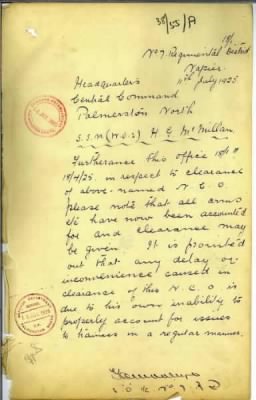 38/55/A
18/1
No 7 Regimental District
Napier
11th July 1925
Headquarters
Central Command
Palmerston North
S.S.M (W.O.2) H G McMillan
Furtherance this office 18/1 of
18/4/25 in respect to clearance
of above-named N.C.O.
please note that all arms
etc have now been accounted
for and clearance may
be given. It is pointed
out that any delay or
inconvenience caused in
clearance of this N.C.O is
due to his own inability to
properly account for issues
to trainees in a regular manner.